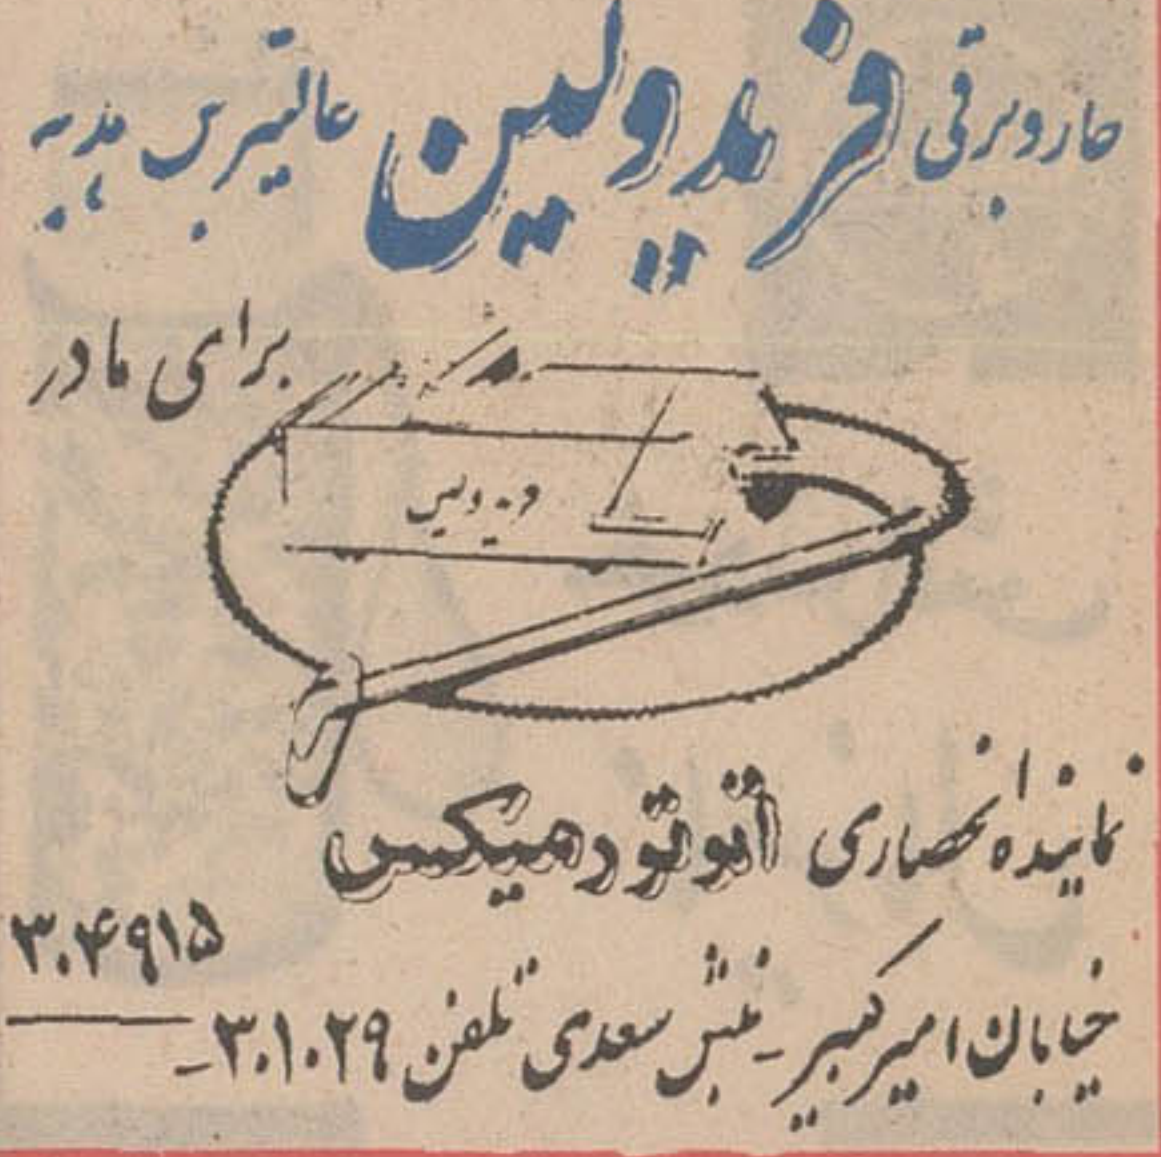 جاروبرقی فریدولین عالیترین هدیه
برای مادر
فریدولین
نماینده انحصاری اتو تودمیکس
۳۰۴۹۱۵
خیابان امیرکبیر - نبش سعدی تلفن ۳۰۱۰۲۹ -